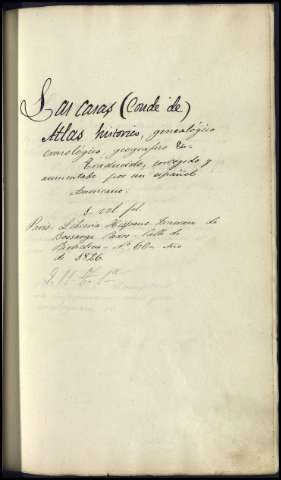 Las casas (Conde de)
Atlas historico, genealógico
cronológico, geografico &c.
Traducido, corregido y
aumentado por un español
Americano.
1 vol fol.
Paris. Libreria Hispano
Bossange Calle de
Nº 60. Año
de 1826.